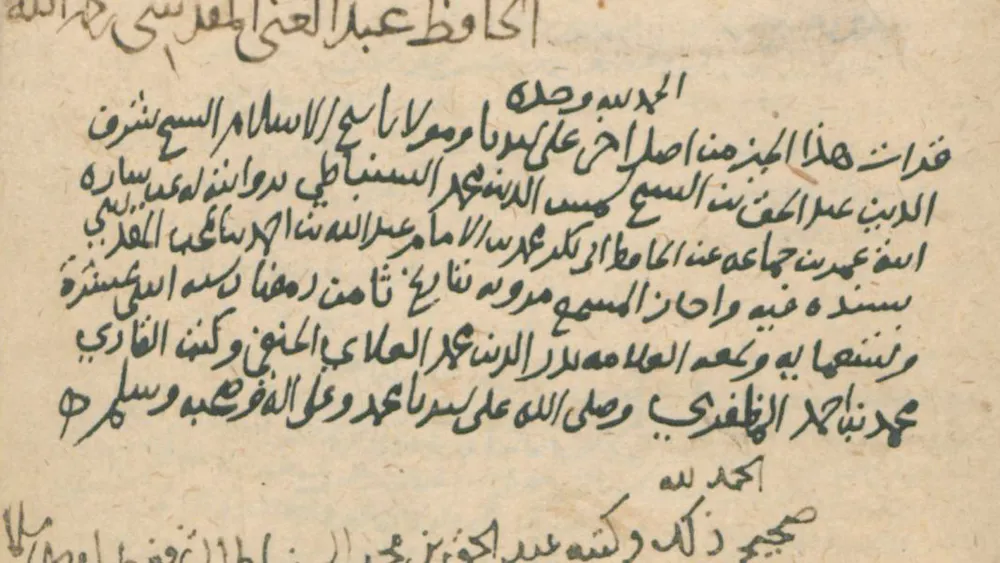 الحافظ عبد الغني المقدسي رحمه الله
الحمد لله وحده
قرات هذا الجز من اصل اخر على سيدنا ومولانا شيخ الاسلام الشيخ شرف
الدين عبد الحق بن الشيخ شمس الدين محمد السنباطي بروايته له عن ساره
ابنة عمر بن جماعه عن الحافظ ابي بكر محمد بن الامام عبد الله بن احمد بن المحب المقدسي
بسنده فيه واجاز المسمع مرويه بتاريخ ثامن رمضان سنه اثني عشرة
وتسعمايه وسمعه العلامه بدر الدين محمد العلاي الحنفي وكتب القاري
محمد بن احمد المظفري وصلى الله على سيدنا محمد وعلى اله وصحبه وسلم
الحمد لله
صحيح ذلك وكتبه عبد الحق بن محمد السنباطي الشافعي